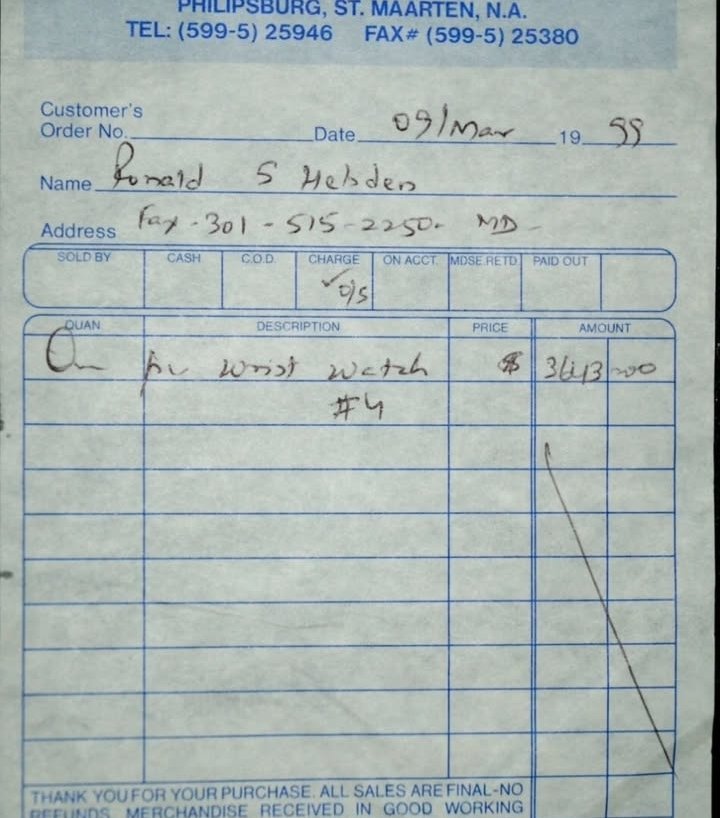 PHILIPSBURG, ST. MAARTEN, N.A.
TEL: (599-5) 25946 FAX# (599-5) 25380
Customer's
Order No. Date 09/Mar 19 99
Name Ronald S Hebden
Address Fax - 301 - 515 - 2250 - MD -
SOLD BY CASH C.O.D. CHARGE ON ACCT. MDSE.RETD. PAID OUT
QUAN DESCRIPTION PRICE AMOUNT
On pc wrist watch $ 3643 00
#4
THANK YOU FOR YOUR PURCHASE. ALL SALES ARE FINAL-NO
REFUNDS. MERCHANDISE RECEIVED IN GOOD WORKING